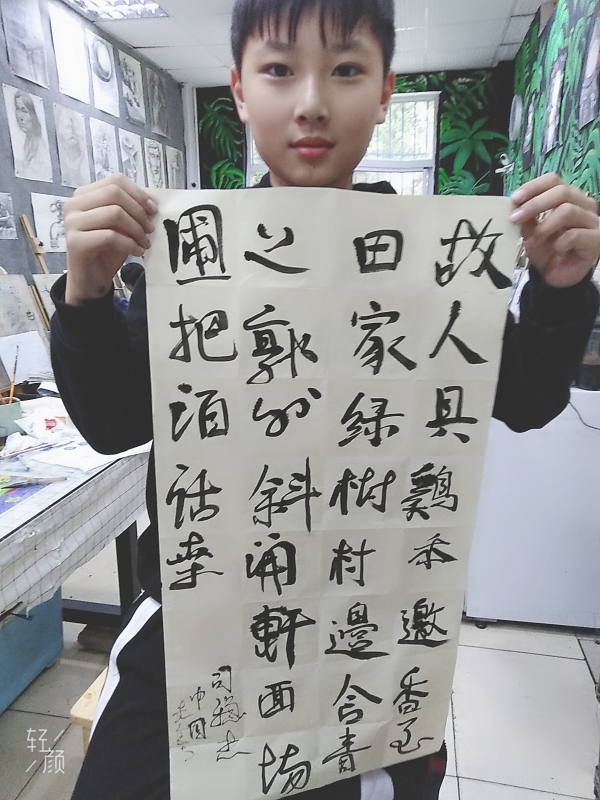 故人具鷄黍邀我至
田家綠樹村邊合青
山郭外斜開軒面場
圃把酒話桑
轻
颜